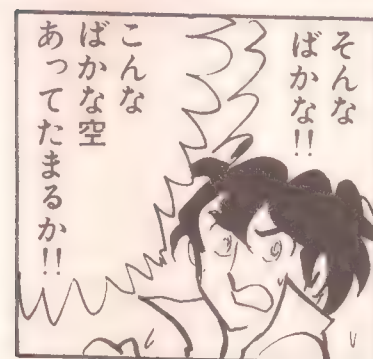 そんな
ばかな!!
こんな
ばかな空
あってたまるか!!